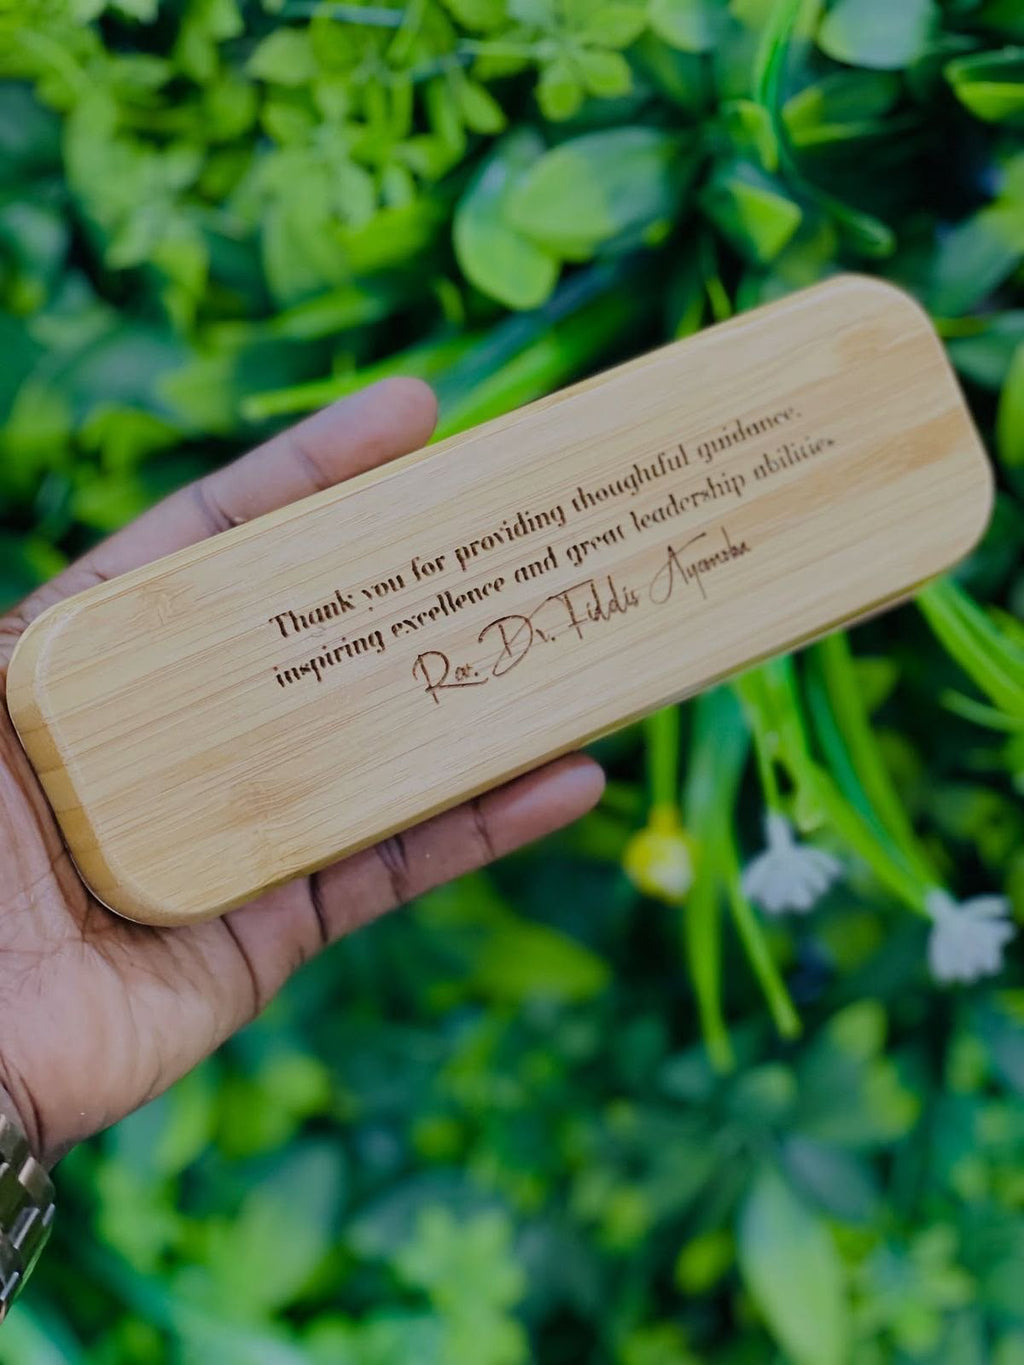 Thank you for providing thoughtful guidance.
inspiring excellence and great leadership abilities.
Rev. Dr. Fiddis Ayamba